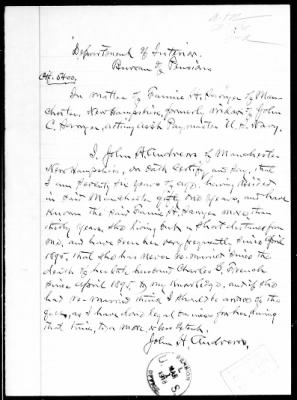 Department of Interior.
Bureau of Pensions
Ctf. 6400.
In matter of Fannie H. Sawyer of Man-
chester, New Hampshire, formerly widow of John
C. Sawyer, acting asst. Paymaster U.S. Navy.
I, John H. Andrews of Manchester
New Hampshire, on oath certify and say, that
I am seventy one years of age, having resided
in said Manchester years, and have
known the said Fannie H. Sawyer more than
thirty years, she living but a short distance from
me, and have seen her very frequently since April
1895, that she has never re-married since the
death of her late husband Charles B. French
since April 1895, to my knowledge, and if she
had re-married think I should be aware of the
, as I have done legal business for her during
that time, to a more or less extent.
John H. Andrews.